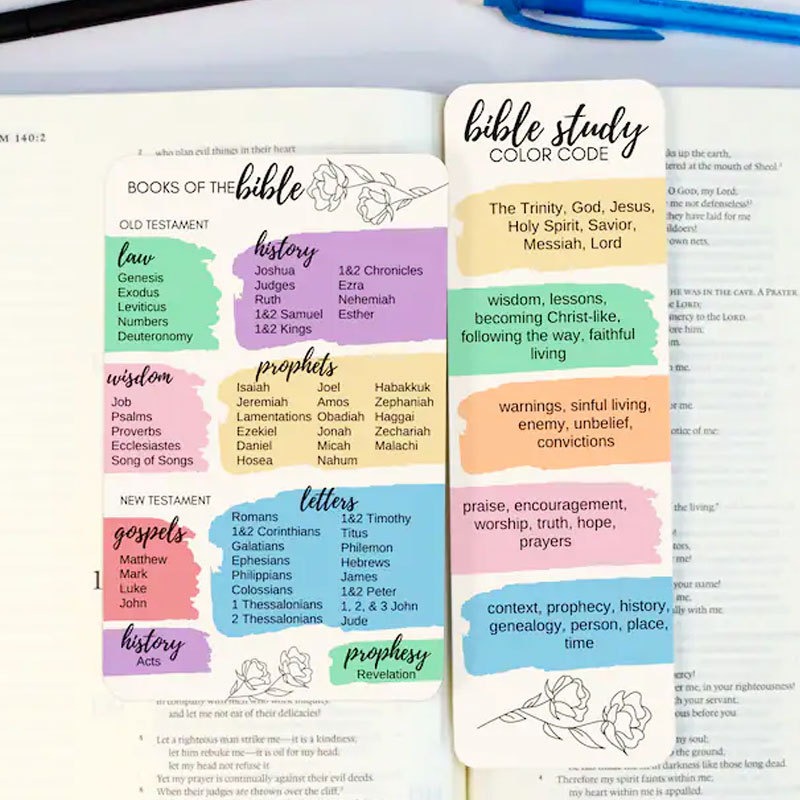 M 140:2
2 who plan evil things in their heart
BOOKS OF THE bible
OLD TESTAMENT
law
Genesis
Exodus
Leviticus
Numbers
Deuteronomy
history
Joshua
Judges
Ruth
1&2 Samuel
1&2 Kings
1&2 Chronicles
Ezra
Nehemiah
Esther
wisdom
Job
Psalms
Proverbs
Ecclesiastes
Song of Songs
prophets
Isaiah
Jeremiah
Lamentations
Ezekiel
Daniel
Hosea
Joel
Amos
Obadiah
Jonah
Micah
Nahum
Habakkuk
Zephaniah
Haggai
Zechariah
Malachi
NEW TESTAMENT
gospels
Matthew
Mark
Luke
John
letters
Romans
1&2 Corinthians
Galatians
Ephesians
Philippians
Colossians
1 Thessalonians
2 Thessalonians
1&2 Timothy
Titus
Philemon
Hebrews
James
1&2 Peter
1, 2, & 3 John
Jude
history
Acts
prophesy
Revelation
and let me not eat of their delicacies!
5 Let a righteous man strike me—it is a kindness;
let him rebuke me—it is oil for my head;
let my head not refuse it.
Yet my prayer is continually against their evil deeds.
6 When their judges are thrown over the cliff,
bible study
COLOR CODE
The Trinity, God, Jesus,
Holy Spirit, Savior,
Messiah, Lord
wisdom, lessons,
becoming Christ-like,
following the way, faithful
living
warnings, sinful living,
enemy, unbelief,
convictions
praise, encouragement,
worship, truth, hope,
prayers
context, prophecy, history,
genealogy, person, place,
time
up the earth,
at the mouth of Sheol.
O GOD, my Lord;
me not defenseless!
they have laid for me
own nets,
HE WAS IN THE CAVE. A PRAYER
LORD;
mercy to the LORD.
me.
notice of me;
the living."
me,
your name!
with me.
me, in your righteousness!
your servant,
before you.
my soul;
the ground;
in darkness like those long dead.
4 Therefore my spirit faints within me;
my heart within me is appalled.